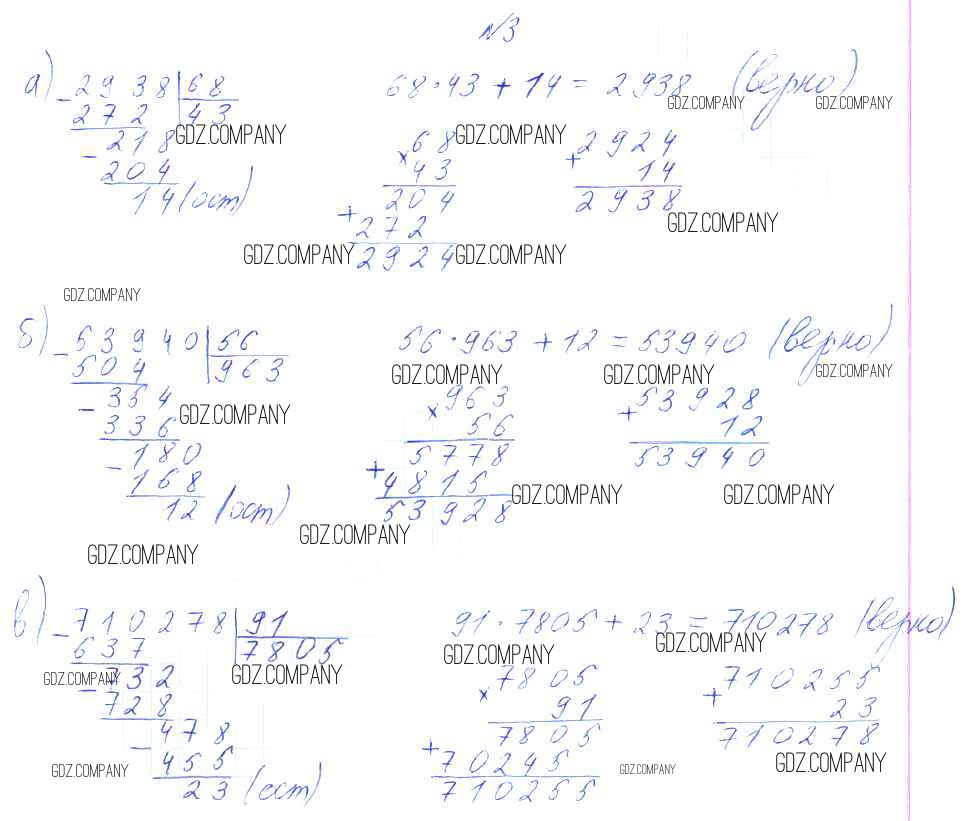 №3
а) - 2938 | 68      68 · 43 + 14 = 2938 (верно)
272 | 43 GDZ.COMPANY GDZ.COMPANY GDZ.COMPANY GDZ.COMPANY
- 218      × 68      + 2924
204      43      14
14 (ост)      204      2938
+ 272 GDZ.COMPANY
GDZ.COMPANY 2924 GDZ.COMPANY
GDZ.COMPANY
б) - 53940 | 56      56 · 963 + 12 = 53940 (верно)
504 | 963 GDZ.COMPANY GDZ.COMPANY GDZ.COMPANY
- 354 GDZ.COMPANY × 963      + 53928
336      56      12
- 180      5778      53940
168      + 4815 GDZ.COMPANY GDZ.COMPANY
12 (ост)      53928
GDZ.COMPANY GDZ.COMPANY
в) - 710278 | 91      91 · 7805 + 23 = 710278 (верно)
637 | 7805 GDZ.COMPANY GDZ.COMPANY
GDZ.COMPANY - 732 GDZ.COMPANY × 7805      + 710255
728      91      23
- 478      7805      710278
GDZ.COMPANY 455      + 70245 GDZ.COMPANY GDZ.COMPANY
23 (ост)      710255